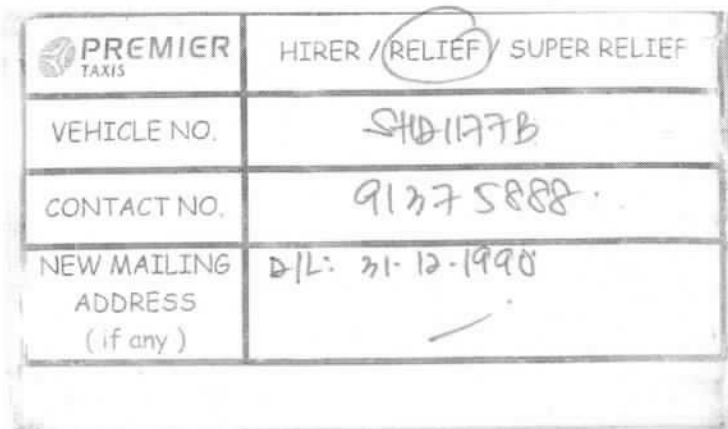 PREMIER
TAXIS
HIRER / RELIEF / SUPER RELIEF
VEHICLE NO.
SHD1177B
CONTACT NO.
91375888.
NEW MAILING
ADDRESS
( if any )
D/L: 31-12-1990